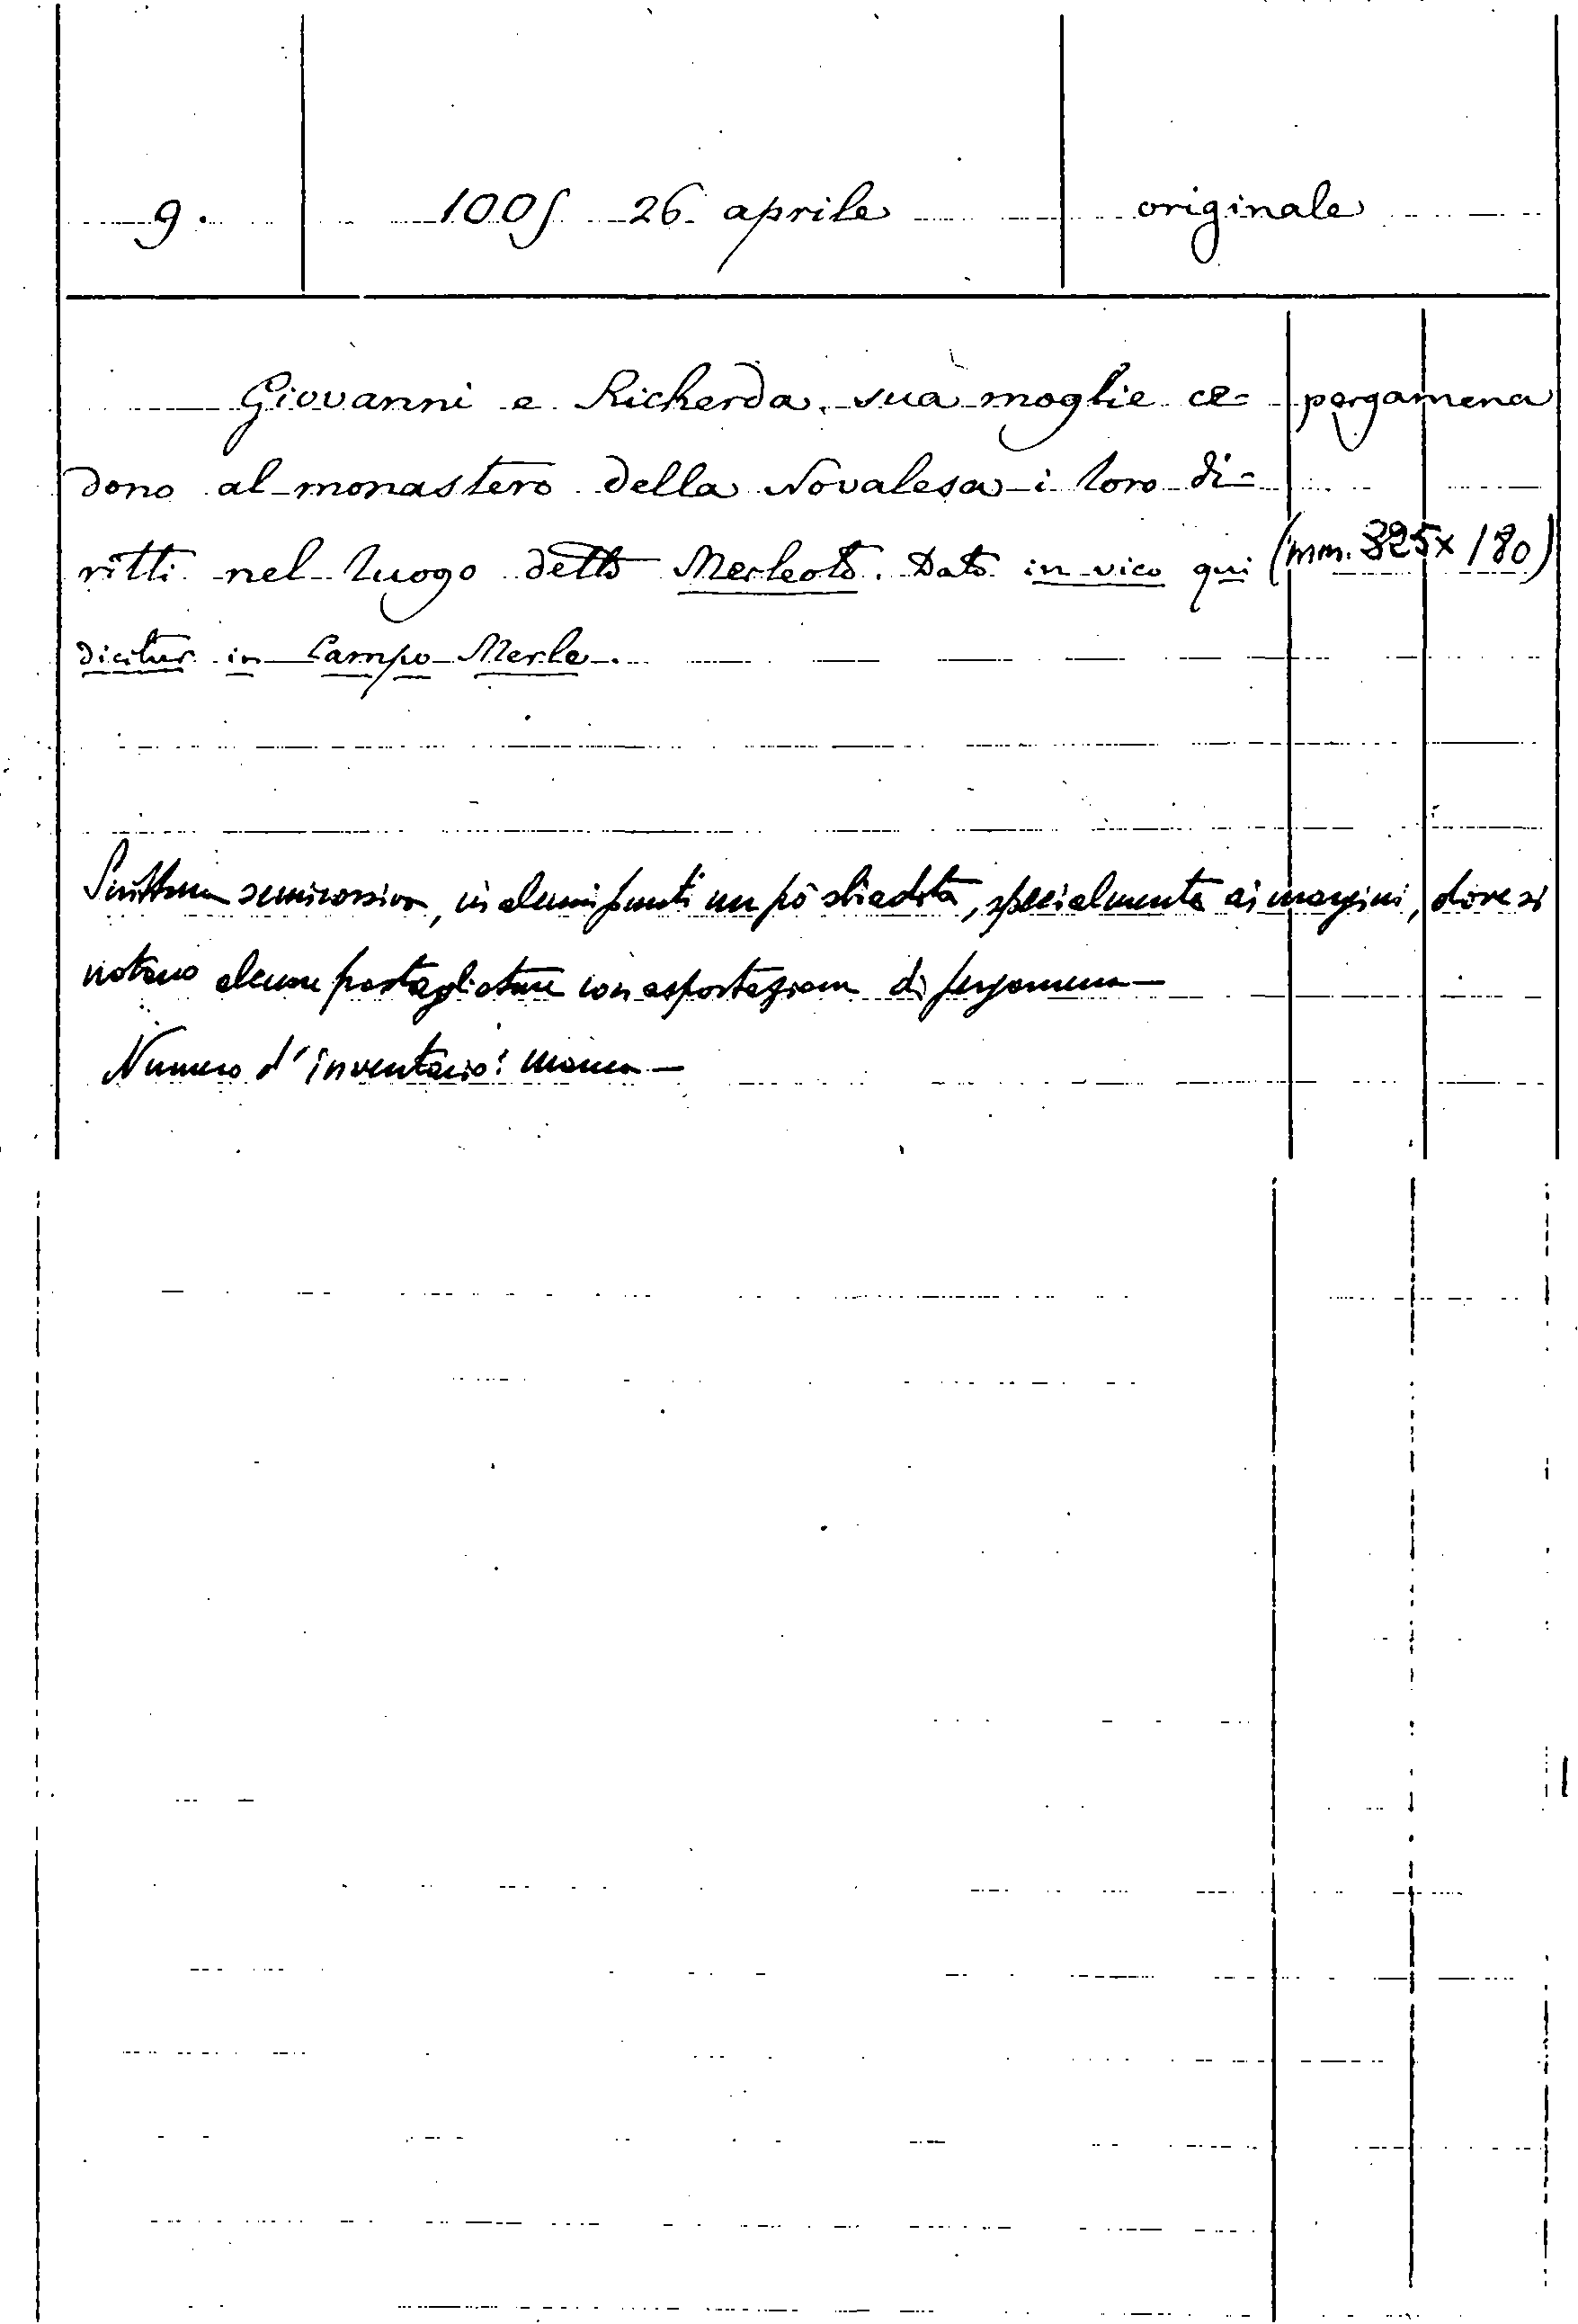 9. 1005 26 aprile originale
Giovanni e Richerda, sua moglie ce= pergamena
dono al monastero della Novalesa i loro di=
ritti nel luogo detto Merleoto. Dato in vico qui (mm. 325 x 180)
dicitur in Campo Merle.
Scrittura semicorsiva, in alcuni punti un pò sbiadita, specialmente ai margini, dove si
notano alcune frastagliature con asportazione di pergamena —
Numero d'inventario: manca —